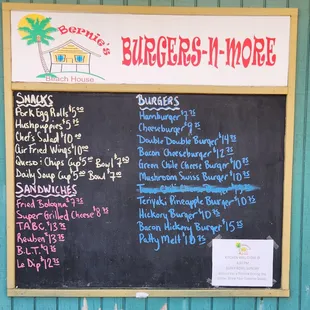 Bernie's
Beach House
BURGERS-N-MORE
SNACKS
Pork Egg Rolls $5
Hushpuppies $5
Chef's Salad $10
Air Fried Wings $10
Queso & Chips Cup $5 Bowl $7
Daily Soup Cup $5 Bowl $7
SANDWICHES
Fried Bologna
Super Grilled Cheese $8
T.A.B.C. $13
Reuben $13
B.L.T. $9
Le Dip $12
BURGERS
Hamburger $7
Cheeseburger $9
Double Double Burger $14
Bacon Cheeseburger $12
Green Chile Cheese Burger $10
Mushroom Swiss Burger $10
Teriyaki Pineapple Burger $10
Hickory Burger $10
Bacon Hickory Burger $15
Patty Melt $10